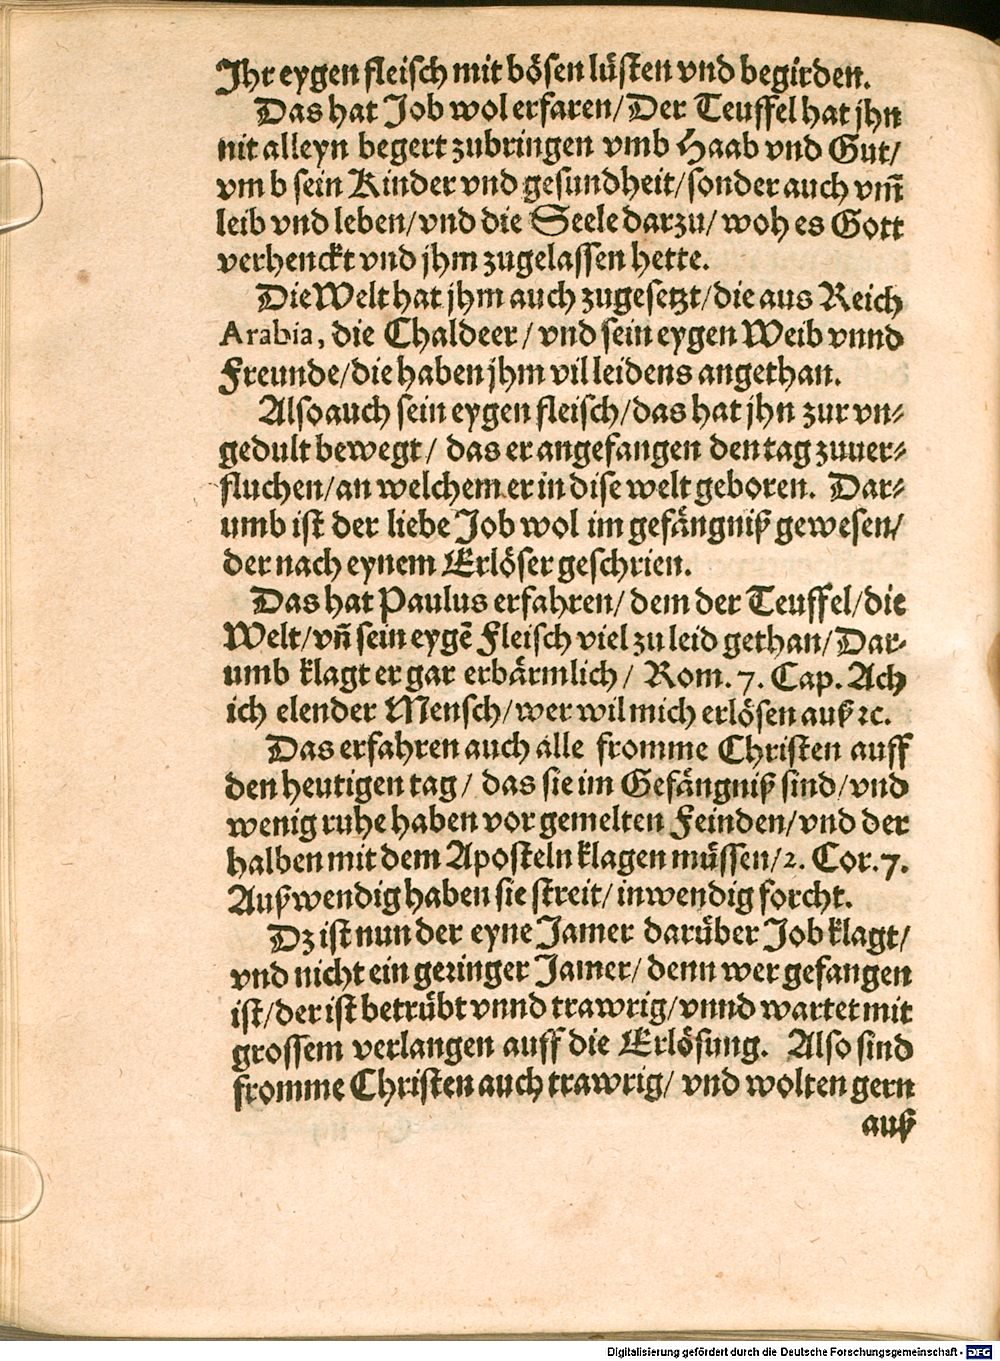 Ihr eygen fleisch mit bösen lüsten vnd begirden.
Das hat Job wol erfaren/ Der Teuffel hat jhn
nit alleyn begert zubringen vmb Haab vnd Gut/
vmb sein Kinder vnd gesundheit/ sonder auch vm̃
leib vnd leben/ vnd die Seele darzu/ woh es Gott
verhenckt vnd jhm zugelassen hette.
Die Welt hat jhm auch zugesetzt/ die aus Reich
Arabia, die Chaldeer/ vnd sein eygen Weib vnnd
Freunde/ die haben jhm vil leidens angethan.
Also auch sein eygen fleisch/ das hat jhn zur vn⸗
gedult bewegt/ das er angefangen den tag zuuer⸗
fluchen/ an welchem er in dise welt geboren. Dar⸗
umb ist der liebe Job wol im gefängniß gewesen/
der nach eynem Erlöser geschrien.
Das hat Paulus erfahren/ dem der Teuffel/ die
Welt/ vñ sein eygẽ Fleisch viel zu leid gethan/ Dar⸗
umb klagt er gar erbärmlich/ Rom. 7. Cap. Ach
ich elender Mensch/ wer wil mich erlösen auß ꝛc.
Das erfahren auch alle fromme Christen auff
den heutigen tag/ das sie im Gefängniß sind/ vnd
wenig ruhe haben vor gemelten Feinden/ vnd der
halben mit dem Aposteln klagen müssen/ 2. Cor. 7.
Außwendig haben sie streit/ inwendig forcht.
Dz ist nun der eyne Jamer darüber Job klagt/
vnd nicht ein geringer Jamer/ denn wer gefangen
ist/ der ist betrübt vnnd trawrig/ vnnd wartet mit
grossem verlangen auff die Erlösung. Also sind
fromme Christen auch trawrig/ vnd wolten gern
auß
Digitalisierung gefördert durch die Deutsche Forschungsgemeinschaft - DFG